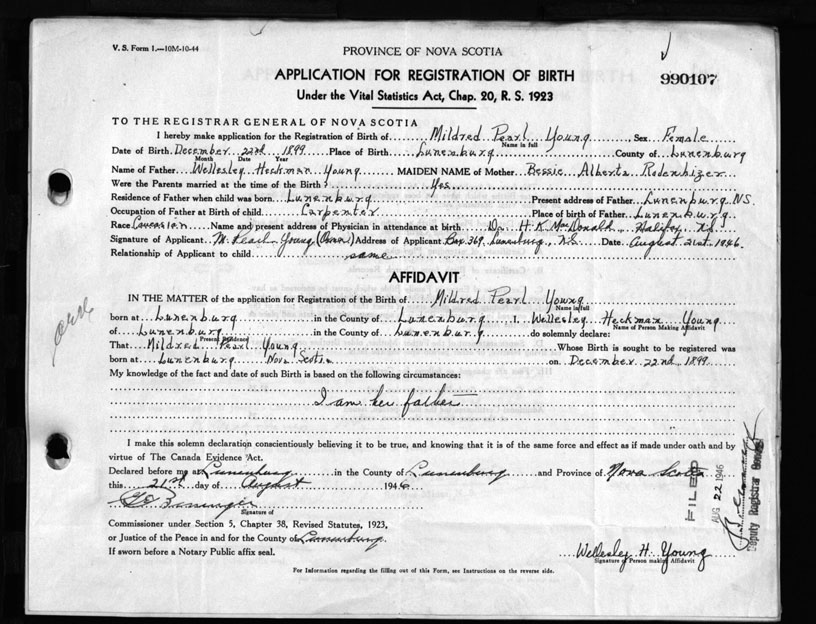 V. S. Form 1.—10M-10-44
PROVINCE OF NOVA SCOTIA
990107
APPLICATION FOR REGISTRATION OF BIRTH
Under the Vital Statistics Act, Chap. 20, R. S. 1923
TO THE REGISTRAR GENERAL OF NOVA SCOTIA
I hereby make application for the Registration of Birth of Mildred Pearl Young, Sex Female
Name in full
Date of Birth December 22nd 1899 Place of Birth Lunenburg County of Lunenburg
Month Date Year
Name of Father Wellesley Heckman Young MAIDEN NAME of Mother Bessie Alberta Rodenhizer
Were the Parents married at the time of the Birth? Yes
Residence of Father when child was born Lunenburg Present address of Father Lunenburg N.S.
Occupation of Father at Birth of child Carpenter Place of birth of Father Lunenburg
Race Caucasian Name and present address of Physician in attendance at birth Dr. H. K. MacDonald, Halifax, N.S
Signature of Applicant M. Pearl Young Address of Applicant Box 369, Lunenburg, N.S. Date August 21st 1946.
Relationship of Applicant to child same
AFFIDAVIT
IN THE MATTER of the application for Registration of the Birth of Mildred Pearl Young
Name in full
born at Lunenburg in the County of Lunenburg I, Wellesley Heckman Young
Name of Person Making Affidavit
of Lunenburg in the County of Lunenburg do solemnly declare:
Present Residence
That Mildred Pearl Young Whose Birth is sought to be registered was
born at Lunenburg Nova Scotia on December 22nd 1899.
My knowledge of the fact and date of such Birth is based on the following circumstances:
I am her father
I make this solemn declaration conscientiously believing it to be true, and knowing that it is of the same force and effect as if made under oath and by
virtue of The Canada Evidence Act.
Declared before me at Lunenburg in the County of Lunenburg and Province of Nova Scotia
this 21st day of August 1946
Signature of
Commissioner under Section 5, Chapter 38, Revised Statutes, 1923,
or Justice of the Peace in and for the County of Lunenburg.
If sworn before a Notary Public affix seal.
Wellesley H. Young
Signature of Person making Affidavit
For Information regarding the filling out of this Form, see Instructions on the reverse side.
FILED
AUG 22 1946
Deputy Registrar General